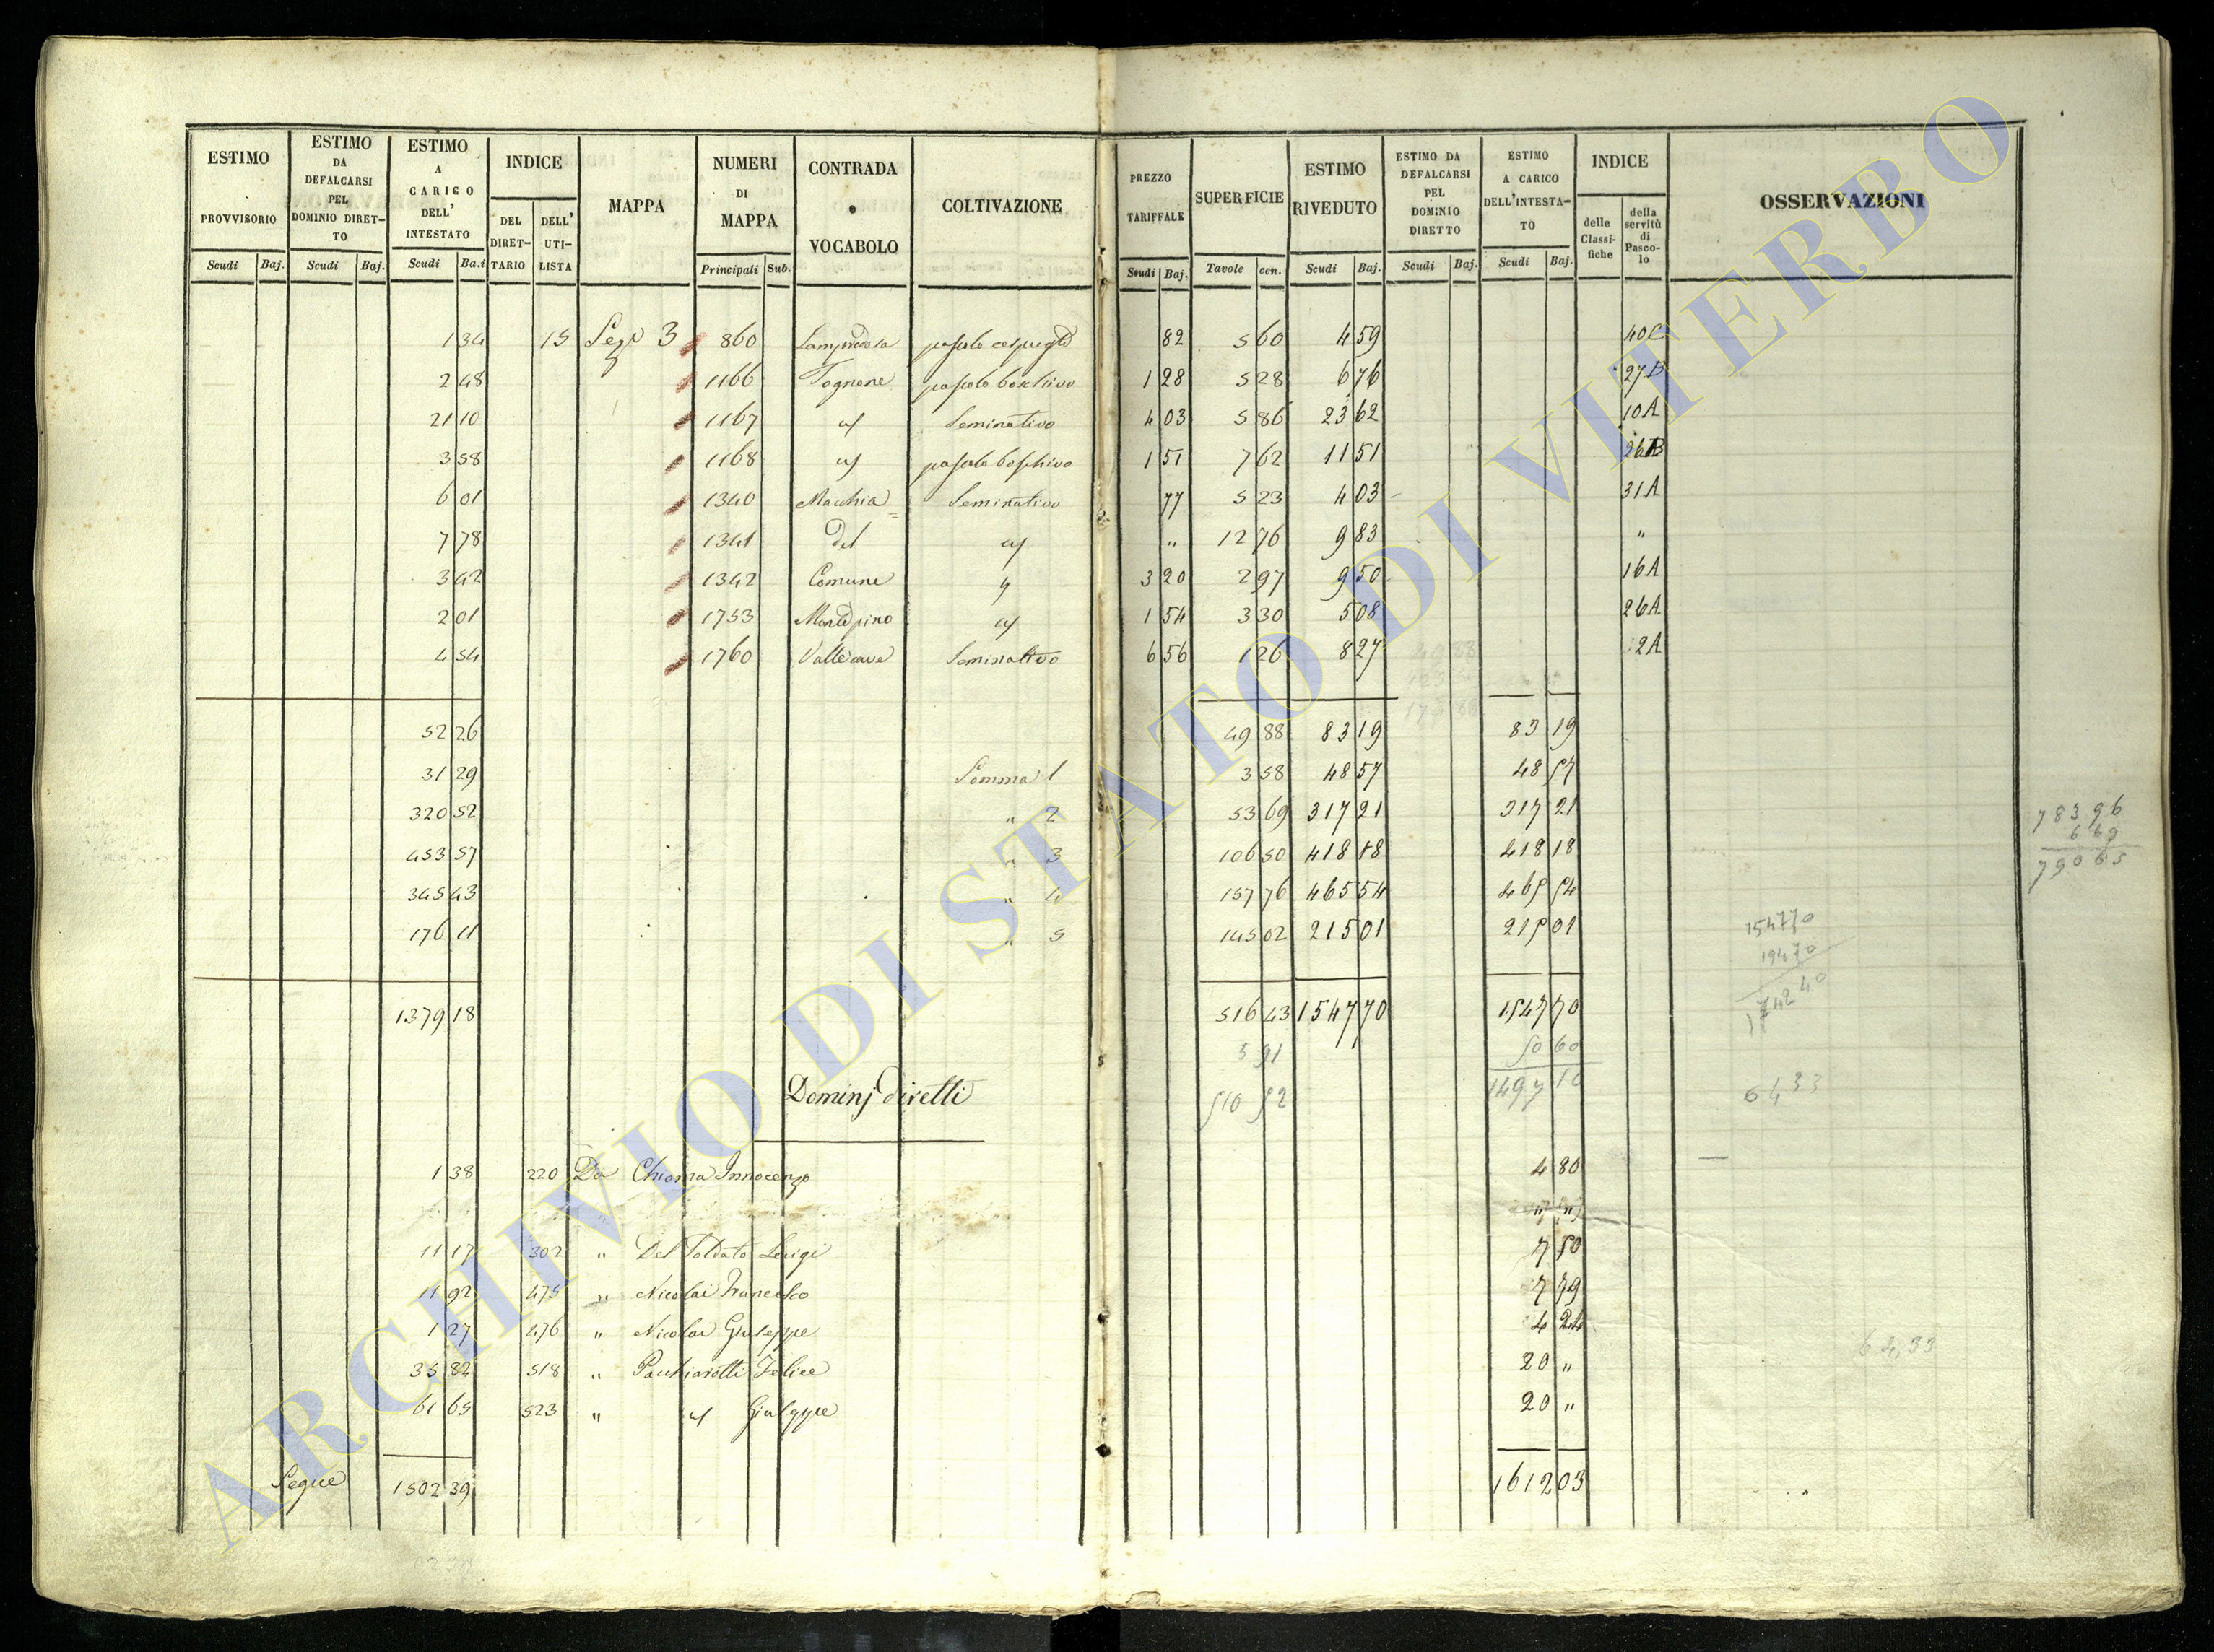 ESTIMO PROVVISORIO Scudi Baj.
ESTIMO DA DEFALCARSI PEL DOMINIO DIRETTO Scudi Baj.
ESTIMO A CARICO DELL' INTESTATO Scudi Ba.i
INDICE DEL DIRETTARIO DELL' UTILISTA
MAPPA
NUMERI DI MAPPA Principali Sub.
CONTRADA o VOCABOLO
COLTIVAZIONE
PREZZO TARIFFALE Scudi Baj.
SUPERFICIE Tavole cen.
ESTIMO RIVEDUTO Scudi Baj.
ESTIMO DA DEFALCARSI PEL DOMINIO DIRETTO Scudi Baj.
ESTIMO A CARICO DELL'INTESTATO Scudi Baj.
INDICE delle Classifiche della servitù di Pascolo
OSSERVAZIONI
1 34 15 3 860 82 5 60 4 59 40C
2 48 1166 Tognone pascolo boschivo 1 28 5 28 6 76 27B
21 10 1167 Seminativo 4 03 5 86 23 62 10A
3 58 1168 pascolo boschivo 1 51 7 62 11 51 26B
6 01 1340 Macchia Seminativo 77 5 23 4 03 31A
7 78 1341 del " 12 76 9 83 "
3 42 1342 Comune 3 20 2 97 9 50 16A
2 01 1753 1 54 3 30 5 08 26A
4 54 1760 Vallecave Seminativo 6 56 1 26 8 27 2A
52 26 49 88 83 19 83 19
31 29 Somma 1 3 58 48 57 48 57
320 52 " 2 53 69 317 21 317 21
453 57 " 3 106 50 418 18 418 18
345 43 " 4 157 76 465 54 465 54
176 11 " 5 145 02 215 01 215 01
1379 18 516 43 1547 70 1547 70
5 91 50 60
Dominj diretti 510 52 1497 10
1 38 220 Da Chioma Innocenzo 4 80
" "
11 17 302 " Del Soldato Luigi 7 50
11 92 475 " Nicolai Francesco 7 79
1 27 476 " Nicolai Giuseppe 4 24
35 82 518 " Pacchiarotti Felice 20 "
61 65 523 " Giuseppe 20 "
Segue 1502 39 1612 03
783.96
6 69
790 65
154770
19470
174240
64 33
64,33
ARCHIVIO DI STATO DI VITERBO